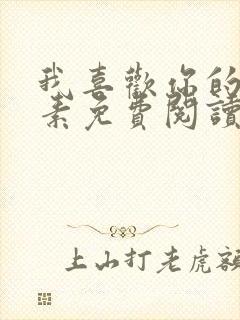 我喜歡你的
素免費閱讀
上山打老虎額